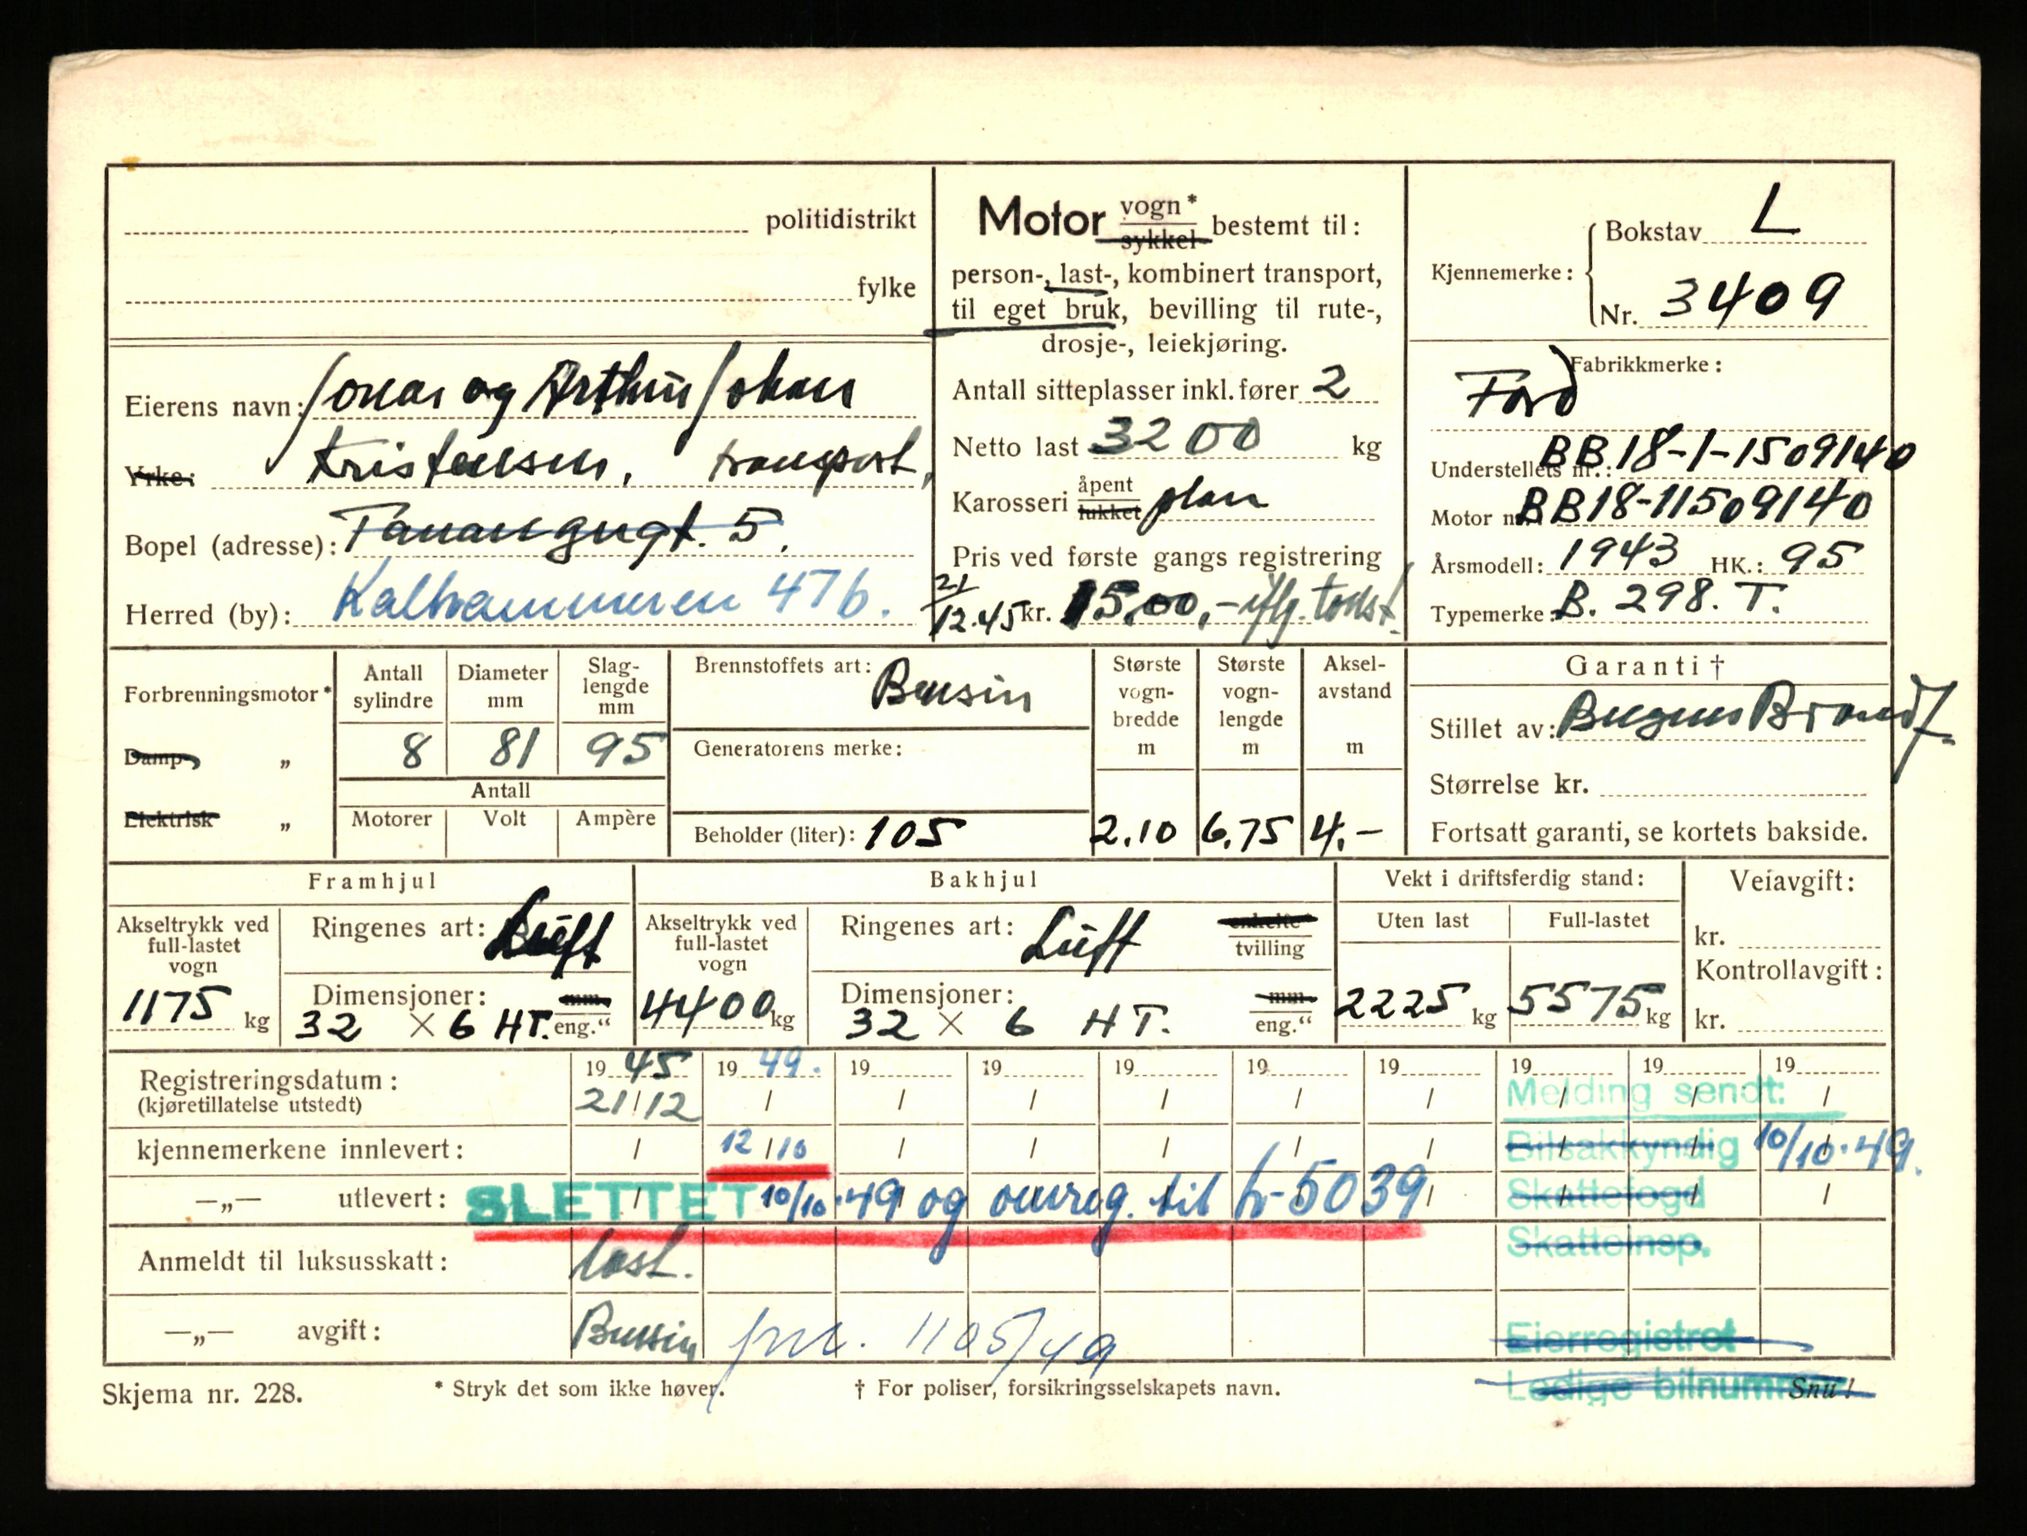 politidistrikt
fylke
Eierens navn: Jonas og Arthur Johan
Yrke: Kristensen, transport,
Bopel (adresse): Tanangergt. 5.
Herred (by): Kalhammeren 47b.
Motor vogn* sykkel bestemt til:
person-, last-, kombinert transport,
til eget bruk, bevilling til rute-,
drosje-, leiekjøring.
Antall sitteplasser inkl. fører 2
Netto last 3200 kg
Karosseri åpent lukket plan
Pris ved første gangs registrering
21/12.45 kr. 15.00,- iflg. takst.
Kjennemerke: Bokstav L
Nr. 3409
Fabrikkmerke:
Ford
Understellets nr.: BB18-1-1509140
Motor nr.: BB18-11509140
Årsmodell: 1943 HK.: 95
Typemerke: B. 298. T.
Forbrenningsmotor*
Damp- „
Elektrisk „
Antall sylindre Diameter mm Slag-lengde mm
8 81 95
Antall
Motorer Volt Ampère
Brennstoffets art: Bensin
Generatorens merke:
Beholder (liter): 105
Største vogn-bredde m Største vogn-lengde m Aksel-avstand m
2.10 6.75 4.-
Garanti †
Stillet av: Brand
Størrelse kr.
Fortsatt garanti, se kortets bakside.
Framhjul
Akseltrykk ved full-lastet vogn
1175 kg
Ringenes art: Luft
Dimensjoner: mm
32 × 6 HT. eng.“
Bakhjul
Akseltrykk ved full-lastet vogn
4400 kg
Ringenes art: Luft enkelte tvilling
Dimensjoner: mm
32 × 6 HT. eng.“
Vekt i driftsferdig stand:
Uten last Full-lastet
2225 kg 5575 kg
Veiavgift:
kr.
Kontrollavgift:
kr.
19 45 19 49. 19 19 19 19 19 19 19 19
Registreringsdatum: 21/12 / / / / / / / / /
(kjøretillatelse utstedt)
Melding sendt:
kjennemerkene innlevert: / 12/10 / / / / / / /
Bilsakkyndig 10/10.49.
—„— utlevert: SLETTET 10/10.49 og omreg. til L-5039
Skattefogd
Skatteinsp.
Anmeldt til luksusskatt: last.
—„— avgift: Bensin jnl. 1105/49
Eierregistret
Ledige bilnummer
Skjema nr. 228. * Stryk det som ikke høver. † For poliser, forsikringsselskapets navn. Snu!